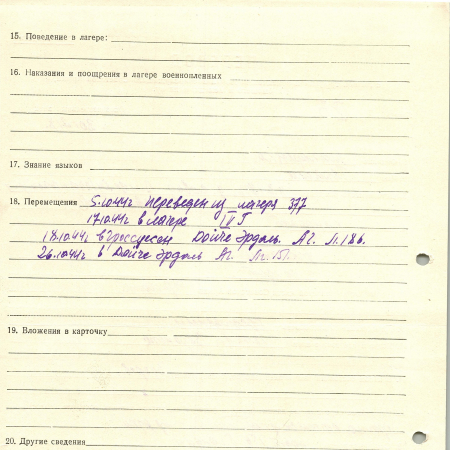 15. Поведение в лагере:
16. Наказания и поощрения в лагере военнопленных
17. Знание языков
18. Перемещения 5.10.44г переведен из лагеря 377
17.10.44г в лагере IV Г
18.10.44г в Дойче Эрдоль. АГ. Л. 186.
26.10.44г в Дойче Эрдоль АГ. Л. 151.
19. Вложения в карточку
20. Другие сведения